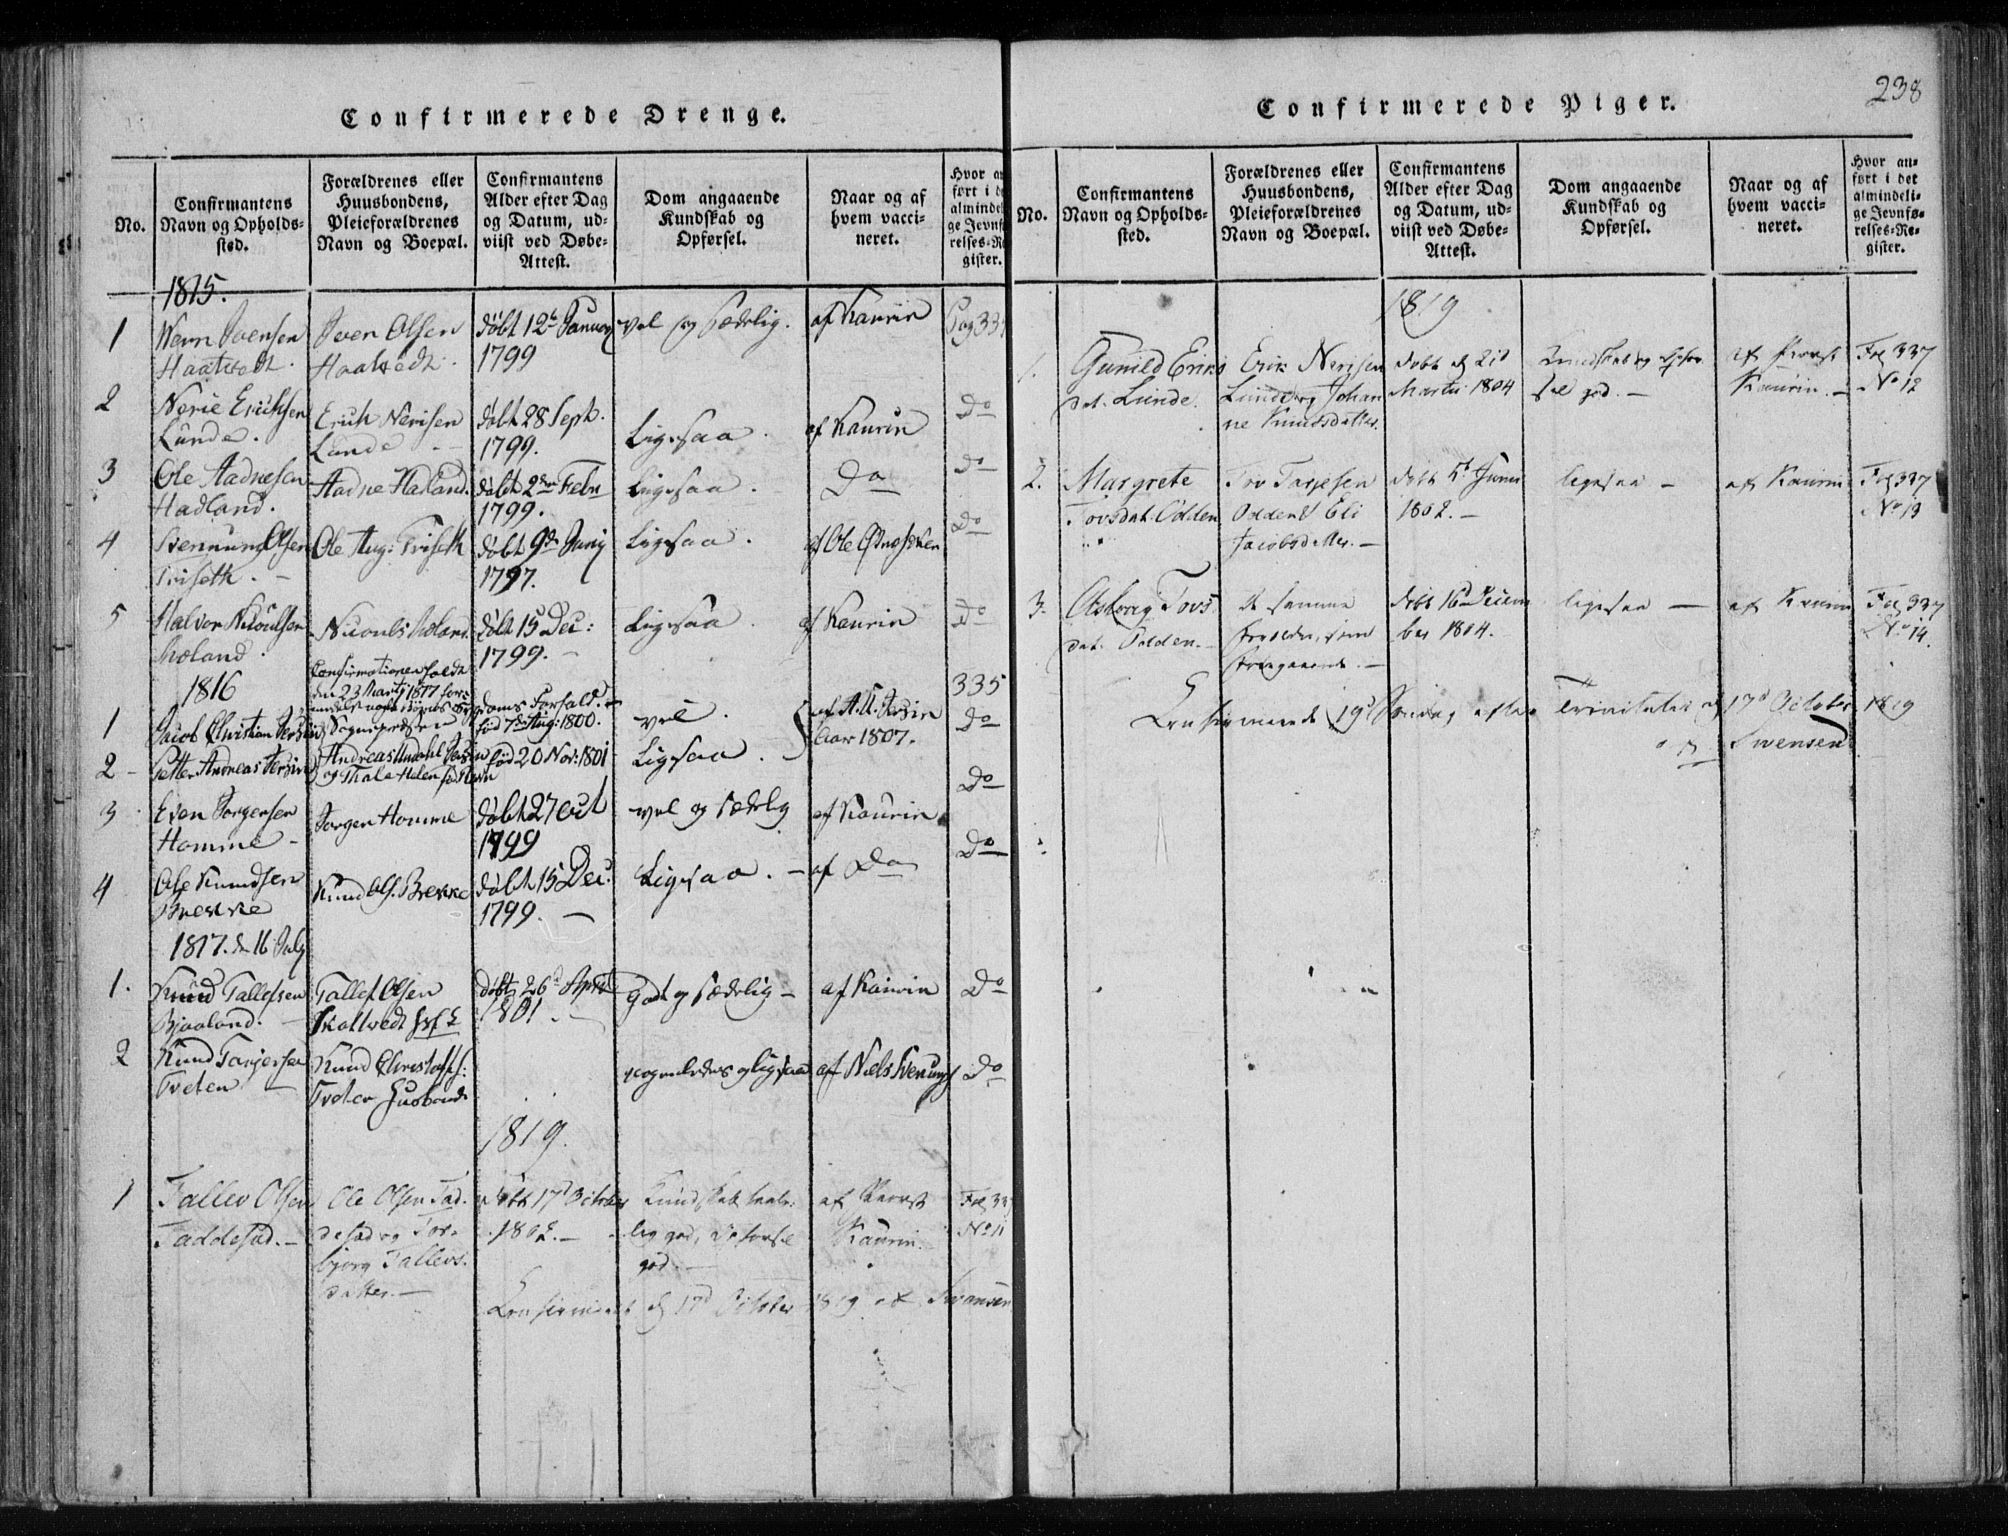 238
Confirmerede Drenge.
No.
Confirmantens
Navn og Opholds-
sted.
Forældrenes eller
Huusbondens,
Pleieforældrenes
Navn og Boepæl.
Confirmantens
Alder efter Dag
og Datum, ud-
viist ved Døbe-
Attest.
Dom angaaende
Kundskab og
Opførsel.
Naar og af
hvem vacci-
neret.
Hvor an
ført i de
almindel
ge Jevnfø
relses-Re
gister.
1815.
1
Joensen
Joen Olsen
døbt 12te January
vel og Sædelig.
af Kaurin
Pag 335
1799
2
Nerie Erichsen
Lunde.
Erich Nerisen
Lunde
døbt 28 Sept.
1799.
Ligesaa.
af Kaurin
Do
3
Ole Aadnesen
Hadland.
Aadne Hadland.
døbt 2den Febr
1799.
Ligesaa.
Do
Do
4
Olsen
Triseth.
Ole Aug: Triseth
døbt 9de Juny
1797.
Ligesaa.
af Ole
Do
5
Halvor Nicoulsen
Moland.
Nicouls Moland.
døbt 15 Dec:
1799.
Ligesaa.
af Kaurin
Do
1816
Confirmationen holdt
den 23 Marty 1817 for-
doms Forfald.
335
1
Jacob Christian Jersin
Sognepræsten
fød 7de Aug: 1800.
vel.
af A. U. Jersin
Aar 1807.
Do
2
Petter Andreas Jersin
Andreas Undahl Jersin
og Thale Helene
fød 20 Nov: 1801
Ligesaa.
Do
3
Even Jorgensen
Homme
Jorgen Homme
døbt 27 Oct
1799
vel og Sædelig
af Kaurin
Do
4
Ole Knudsen
Brekke
Knud Ols. Brekke
døbt 15 Dec.
1799.
Ligesaa.
af Do
1817. d. 16 July
1.
Knud Tallefsen
Bjaaland.
Tallef Olsen
Skattvedt
døbt 26d April
1801.
Godt og Sædelig
af Kaurin
Do
2
Knud Tarjersen
Tveten
Knud Christophs:
Tveten Husbond
nogenledes og ligesaa
af Niels
Do
1819.
1
Tallev Olsen
Taddesad.
Ole Olsen Tad-
desad og Tor-
bjorg Tallevs-
datter.
Døbt 17d October
1802.
Kundskab taale-
lig god, Opførsel
god.
af Provst
Kaurin.
Fol 337
No 11
Confirmeret d. 17d October 1819 af Svensen
Confirmerede Piger.
No.
Confirmantens
Navn og Opholds-
sted.
Forældrenes eller
Huusbondens,
Pleieforældrenes
Navn og Boepæl.
Confirmantens
Alder efter Dag
og Datum, ud-
viist ved Døbe-
Attest.
Dom angaaende
Kundskab og
Opførsel.
Naar og af
hvem vacci-
neret.
Hvor an-
ført i det
almindeli-
ge Jevnfø-
relses-Re-
gister.
1819
1.
Gunild Eriks
dat. Lunde.
Erik Nerisen
Lunde og Johan
ne Knudsdatter.
døbt d. 21d
Martii 1804
Kundskab og Opfør
sel god.
af Provst
Kaurin.
Fol 337
No 12
2.
Margrete
Tovsdat. Odden
Tov Tarjesen
Odden & Eli
Jacobsdatter.
døbt 5d Junii
1802.
ligesaa
af Kaurin
Fol 337
No 13
3.
Aslaug Tovs
dat. Odden.
De samme
Forældre, som
foregaaende.
døbt 16d Decem
ber 1804.
ligesaa
af Kaurin
Fol 337
No 14.
Confirmerede 19d Søndag efter Trinitatis d. 17d October 1819
af Svensen